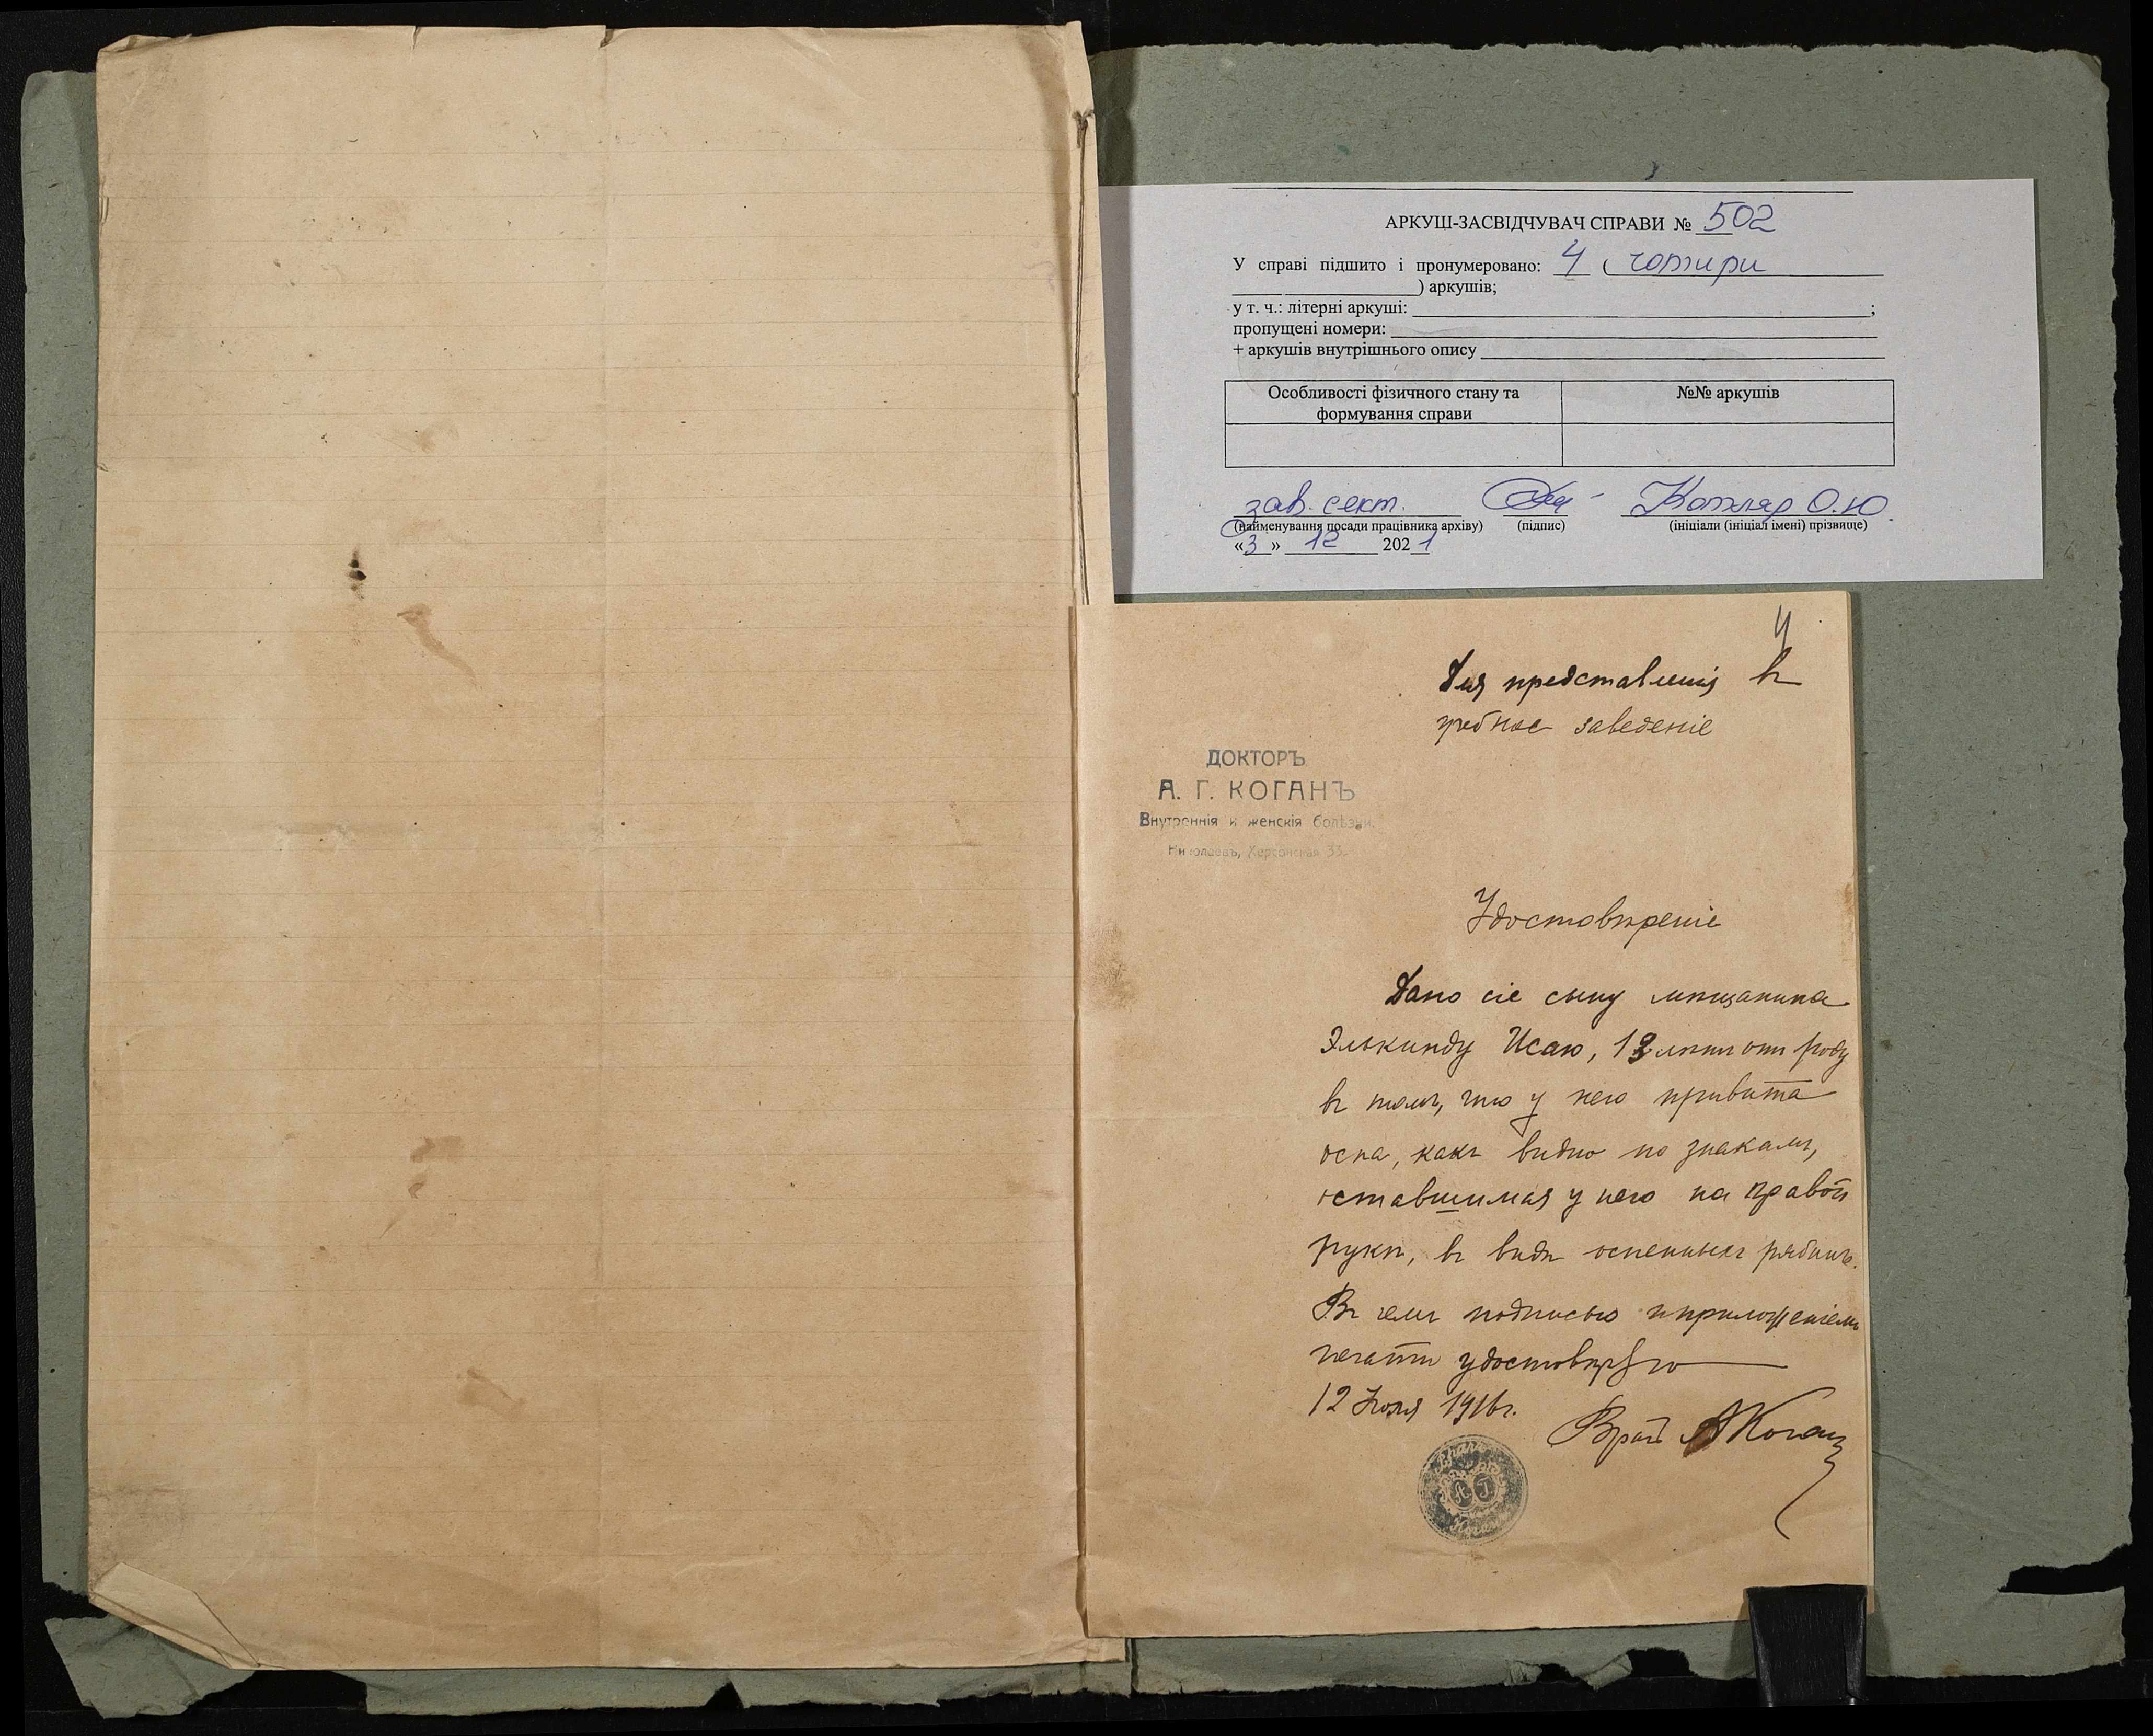 АРКУШ-ЗАСВІДЧУВАЧ СПРАВИ № 502
У справі підшито і пронумеровано: 4 ( чотири
) аркушів;
у т. ч.: літерні аркуші: ;
пропущені номери:
+ аркушів внутрішнього опису
Особливості фізичного стану та формування справи
№№ аркушів
зав. сект. Котляр О.Ю.
(найменування посади працівника архіву) (підпис) (ініціали (ініціал імені) прізвище)
«3» 12 2021
4
Для представленія въ
учебное заведеніе
ДОКТОРЪ
А. Г. КОГАНЪ
Внутреннія и женскія болѣзни.
Николаевъ, Херсонская 33.
Удостовѣреніе
Дано сіе сыну мѣщанина
Элькинду Исаю, лѣтъ отъ роду
въ томъ, что у него привита
оспа, какъ видно по знакамъ,
оставшимся у него на правой
рукѣ, въ видѣ оспенныхъ рябинъ.
Въ чемъ подписью и приложеніемъ
печати удостовѣряю
12 1916г.
Врачъ А Коганъ
Врачъ
А Г
Коганъ